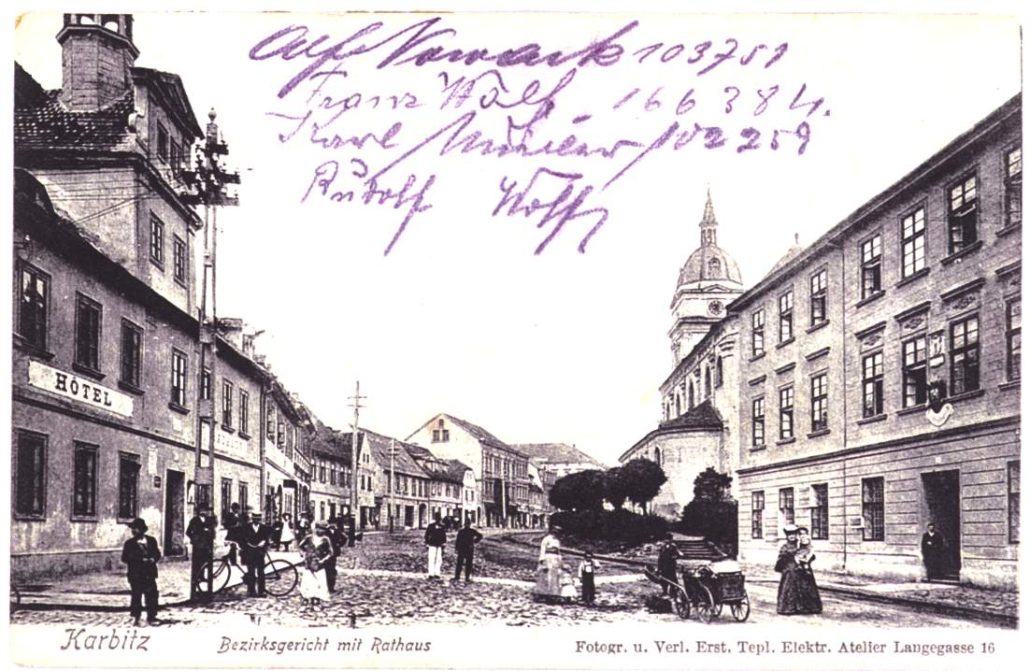 Alf Nowark 103751
Franz Wolf 166384.
Karl Müller 102259
Rudolf Wolf
HÔTEL
Karbitz
Bezirksgericht mit Rathaus
Fotogr. u. Verl. Erst. Tepl. Elektr. Atelier Langegasse 16